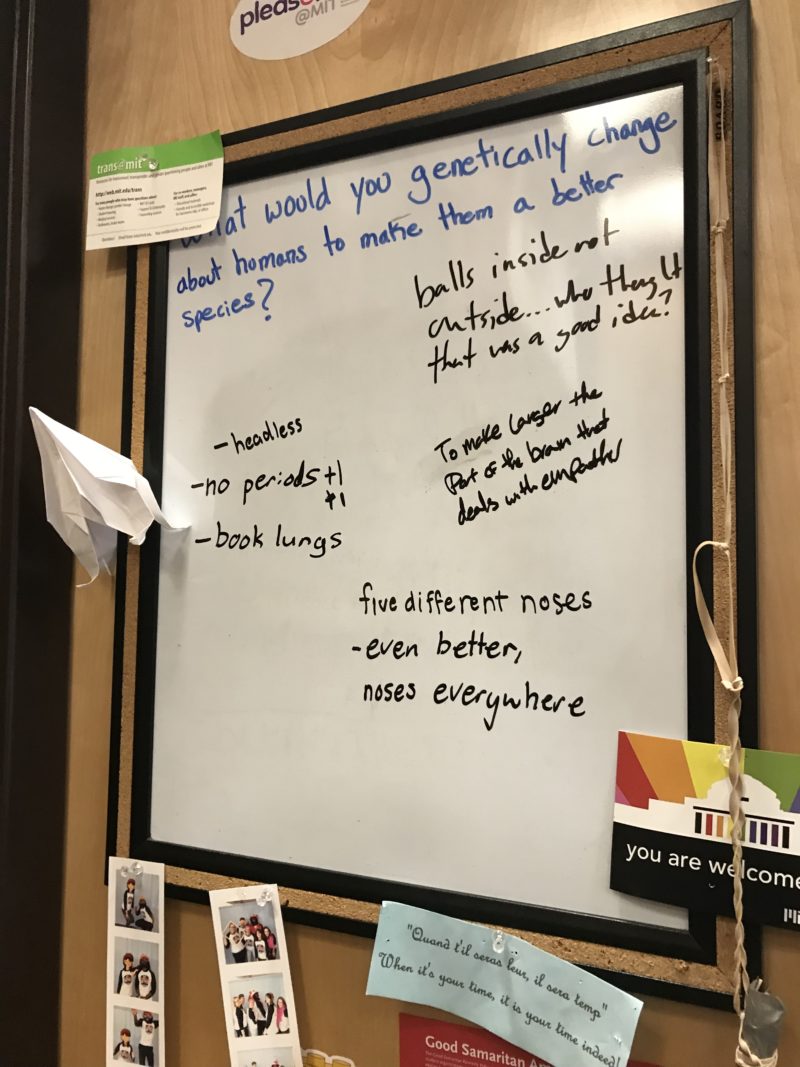 @MIT
trans@mit
http://web.mit.edu/trans
What would you genetically change
about homans to make them a better
species?
balls inside not
outside... who thought
that was a good idea?
-headless
-no periods +1
+1
-book lungs
To make larger the
Part of the brain that
deals with empathy
five different noses
-even better,
noses everywhere
you are welcome
"Quand t'il seras leur, il sera temp"
When it's your time, it is your time indeed!
Good Samaritan